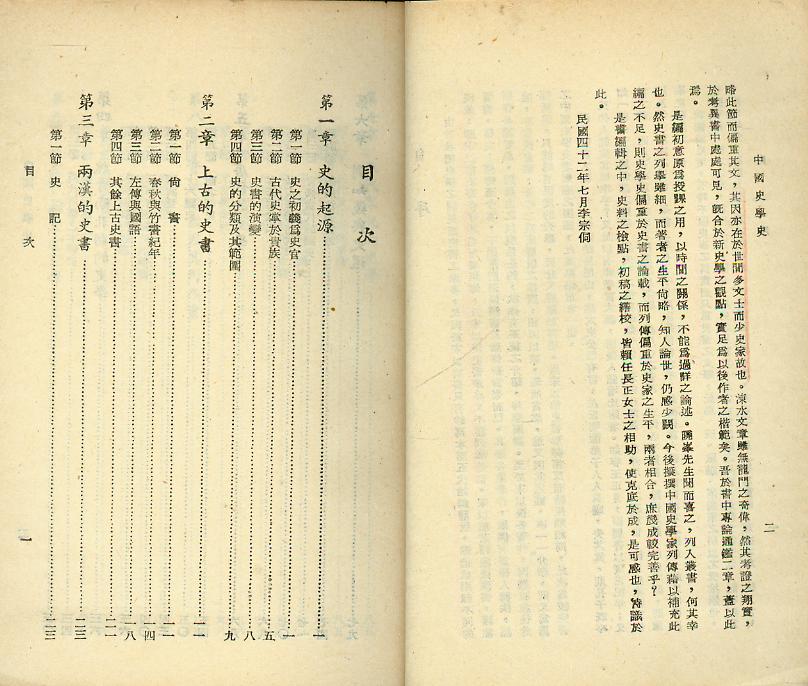 中國史學史
二
略此節而偏重其文，其因亦在於世間多文士而少史家故也。涑水文章雖無龍門之奇偉，然其考證之翔實，
於考異書中處處可見，旣合於新史學之觀點，實足爲以後作者之楷範矣。吾於書中專論通鑑二章，蓋以此
焉。
是編初意原爲授課之用，以時間之關係，不能爲過詳之論述。曉峯先生聞而喜之，列入叢書，何其幸
也。然史書之列舉雖細，而著者之生平尙略，知人論世，仍感少闕。今後擬撰中國史學家列傳藉以補充此
編之不足，則史學史偏重於史書之論載，而列傳偏重於史家之生平，兩者相合，庶幾成較完善乎？
是書編輯之中，史料之檢點，初稿之繕校，皆賴任長正女士之相助，使克底於成，是可感也，特識於
此。
民國四十二年七月李宗侗
目次
第一章 史的起源……一
第一節 史之初義爲史官……一
第二節 古代史掌於貴族……五
第三節 史書的演變……八
第四節 史的分類及其範圍……九
第二章 上古的史書……一一
第一節 尙書……一一
第二節 春秋與竹書紀年……一四
第三節 左傳與國語……一八
第四節 其餘上古史書……二一
第三章 兩漢的史書……二三
第一節 史記……二三
目次
一